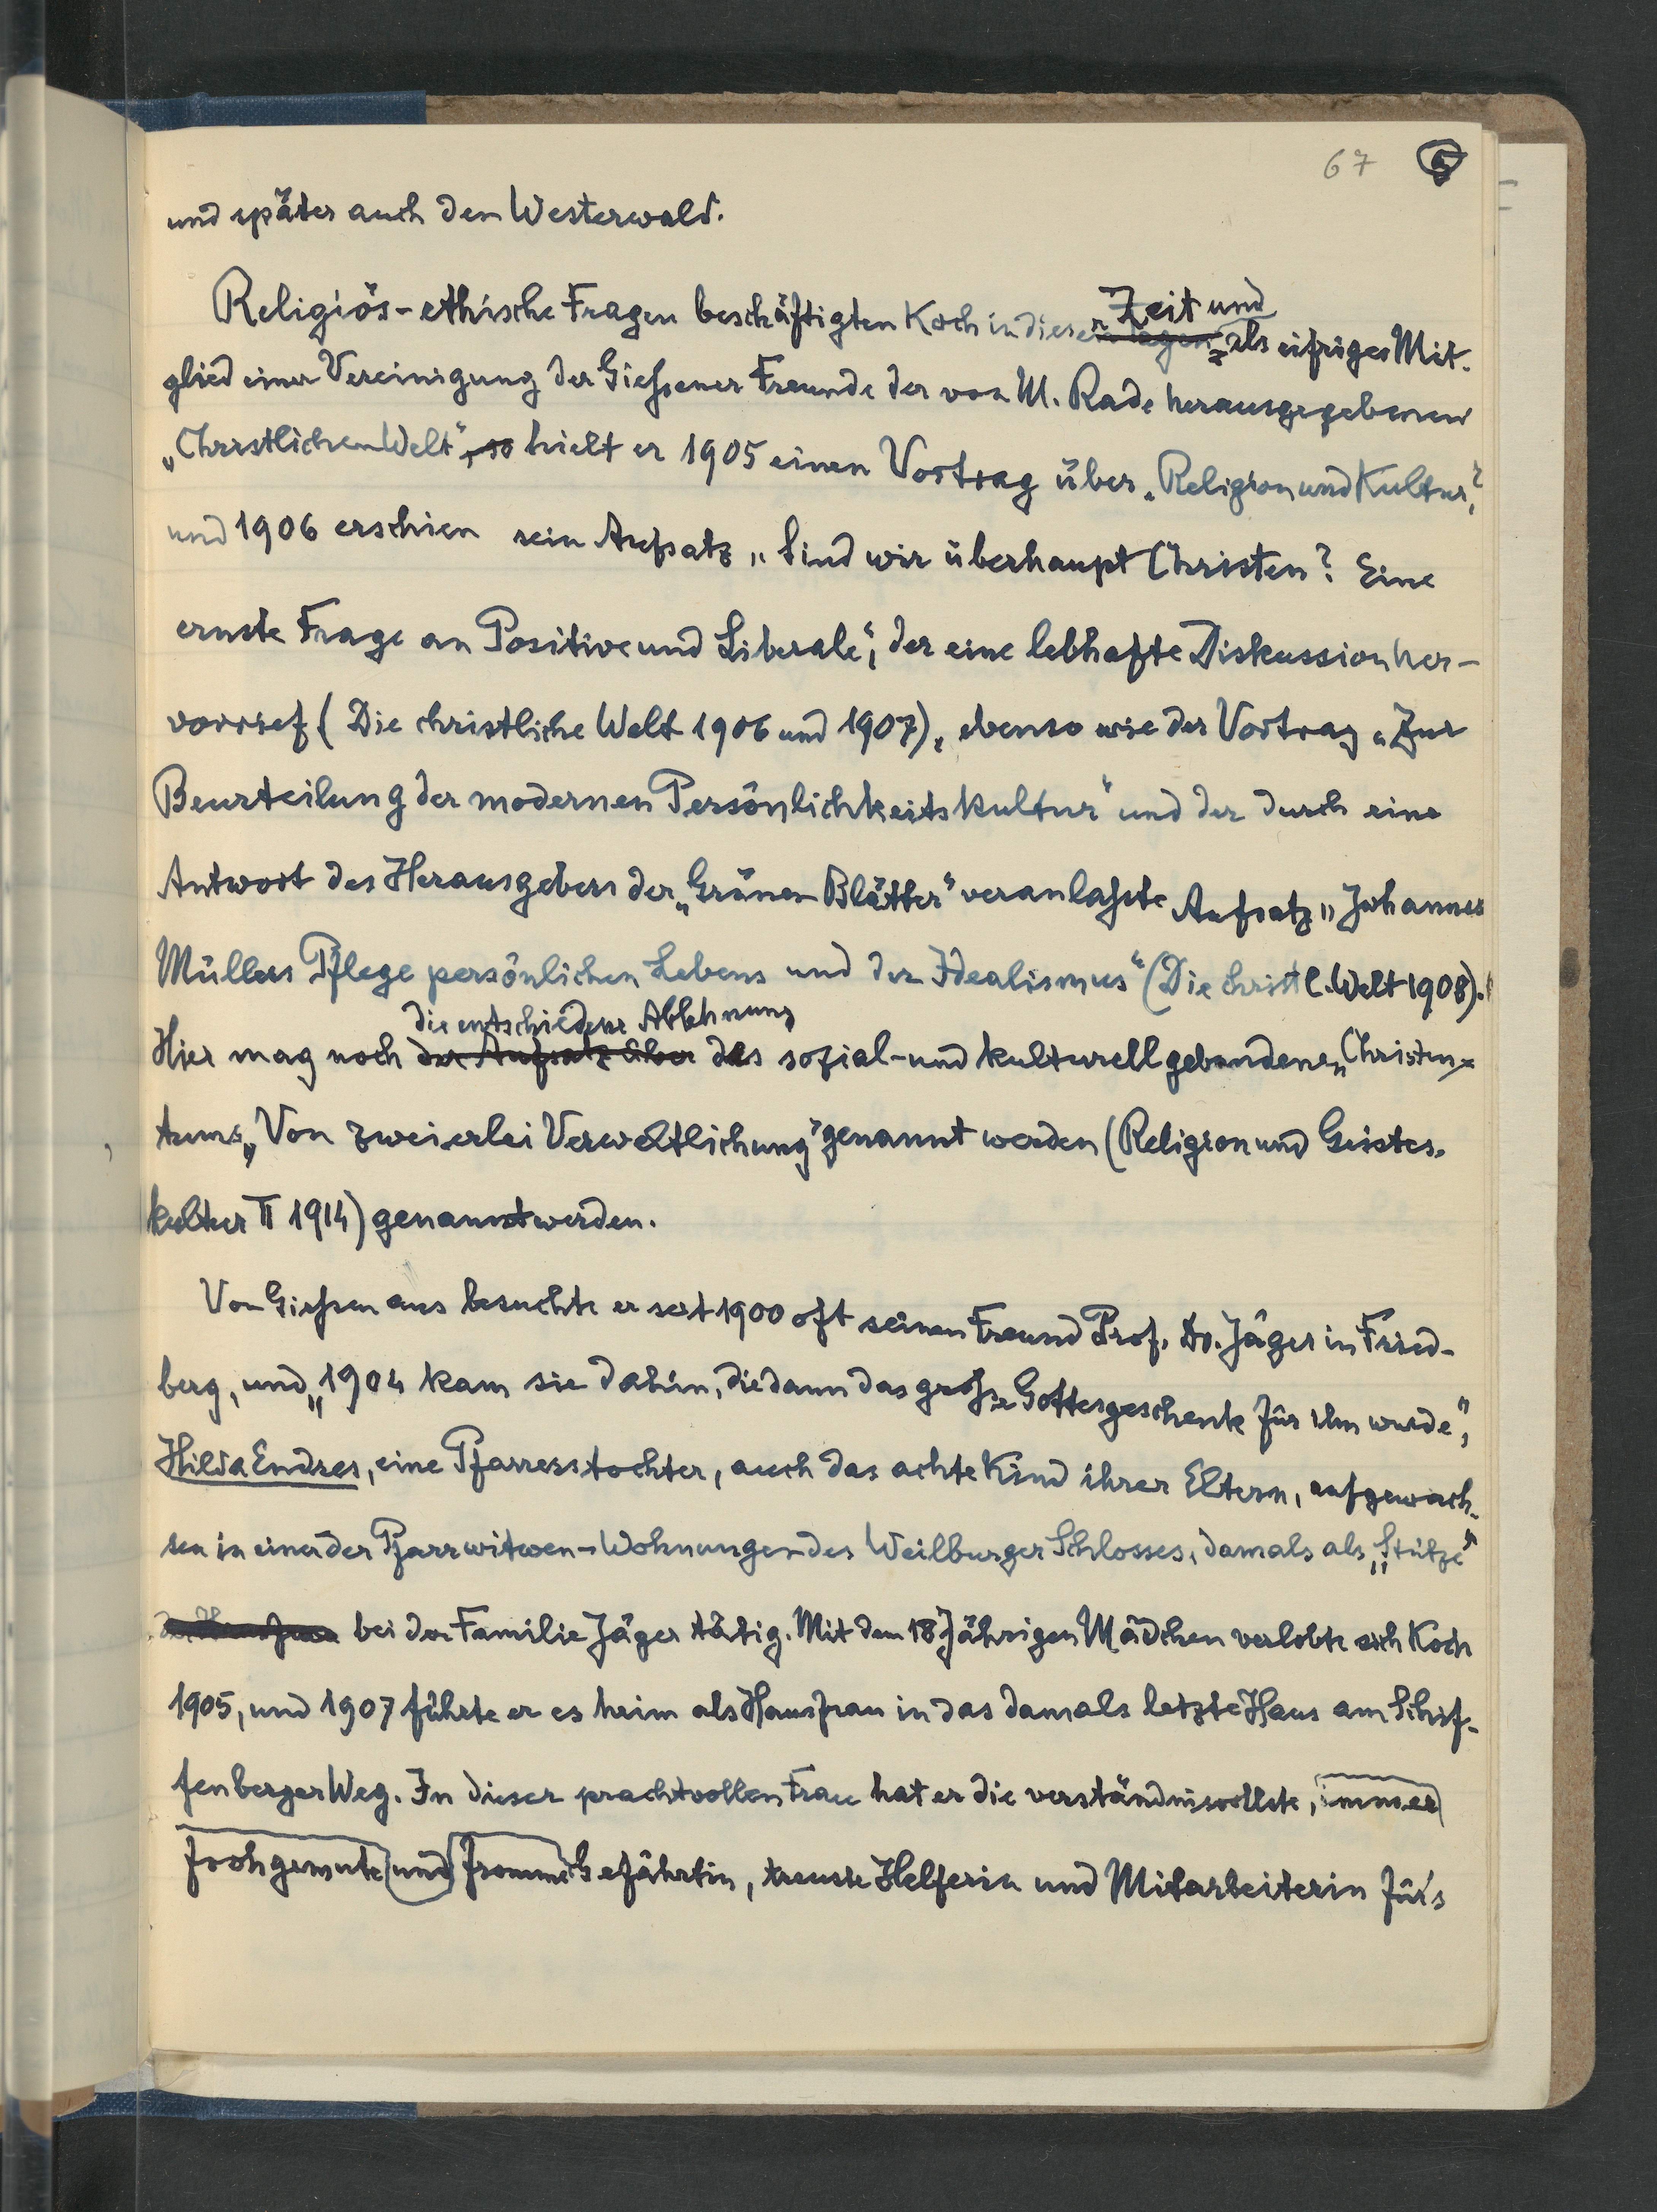 67 5
und später auch den Westerwald.
Religiös-ethische Fragen beschäftigten Koch in dieser Zeit und
als eifriges Mit-
glied einer Vereinigung der Gießener Freunde der von M. Rade herausgegebenen
„Christlichen Welt", so hielt er 1905 einen Vortrag über „Religion und Kultur",
und 1906 erschien sein Aufsatz „Sind wir überhaupt Christen? Eine
ernste Frage an Positive und Liberale", der eine lebhafte Diskussion her-
vorrief (Die christliche Welt 1906 und 1907), ebenso wie der Vortrag „Zur
Beurteilung der modernen Persönlichkeitskultur" und der durch eine
Antwort des Herausgebers der „Grünen Blätter" veranlaßte Aufsatz „Johannes
Müllers Pflege persönlichen Lebens und der Idealismus" (Die christl. Welt 1908).
die entschiedene Ablehnung
Hier mag noch der Aufsatz über des sozial- und kulturell gebundenen „Christen-
tums „Von zweierlei Verweltlichung" genannt werden (Religion und Geistes-
kultur II 1914) genannt werden.
Von Gießen aus besuchte er seit 1900 oft seinen Freund Prof. Dr. Jäger in Fried-
berg, und „1904 kam sie dahin, die dann das große Gottesgeschenk für ihn wurde",
Hilda Endres, eine Pfarrerstochter, auch das achte Kind ihrer Eltern, aufgewach-
sen in einer der Pfarrwitwen-Wohnungen des Weilburger Schlosses, damals als „Stütze"
der Hausfrau bei der Familie Jäger tätig. Mit dem 18jährigen Mädchen verlobte sich Koch
1905, und 1907 führte er es heim als Hausfrau in das damals letzte Haus am Schif-
fenberger Weg. In dieser prachtvollen Frau hat er die verständnisvollste, immer
frohgemute und fromme Gefährtin, treuste Helferin und Mitarbeiterin für's